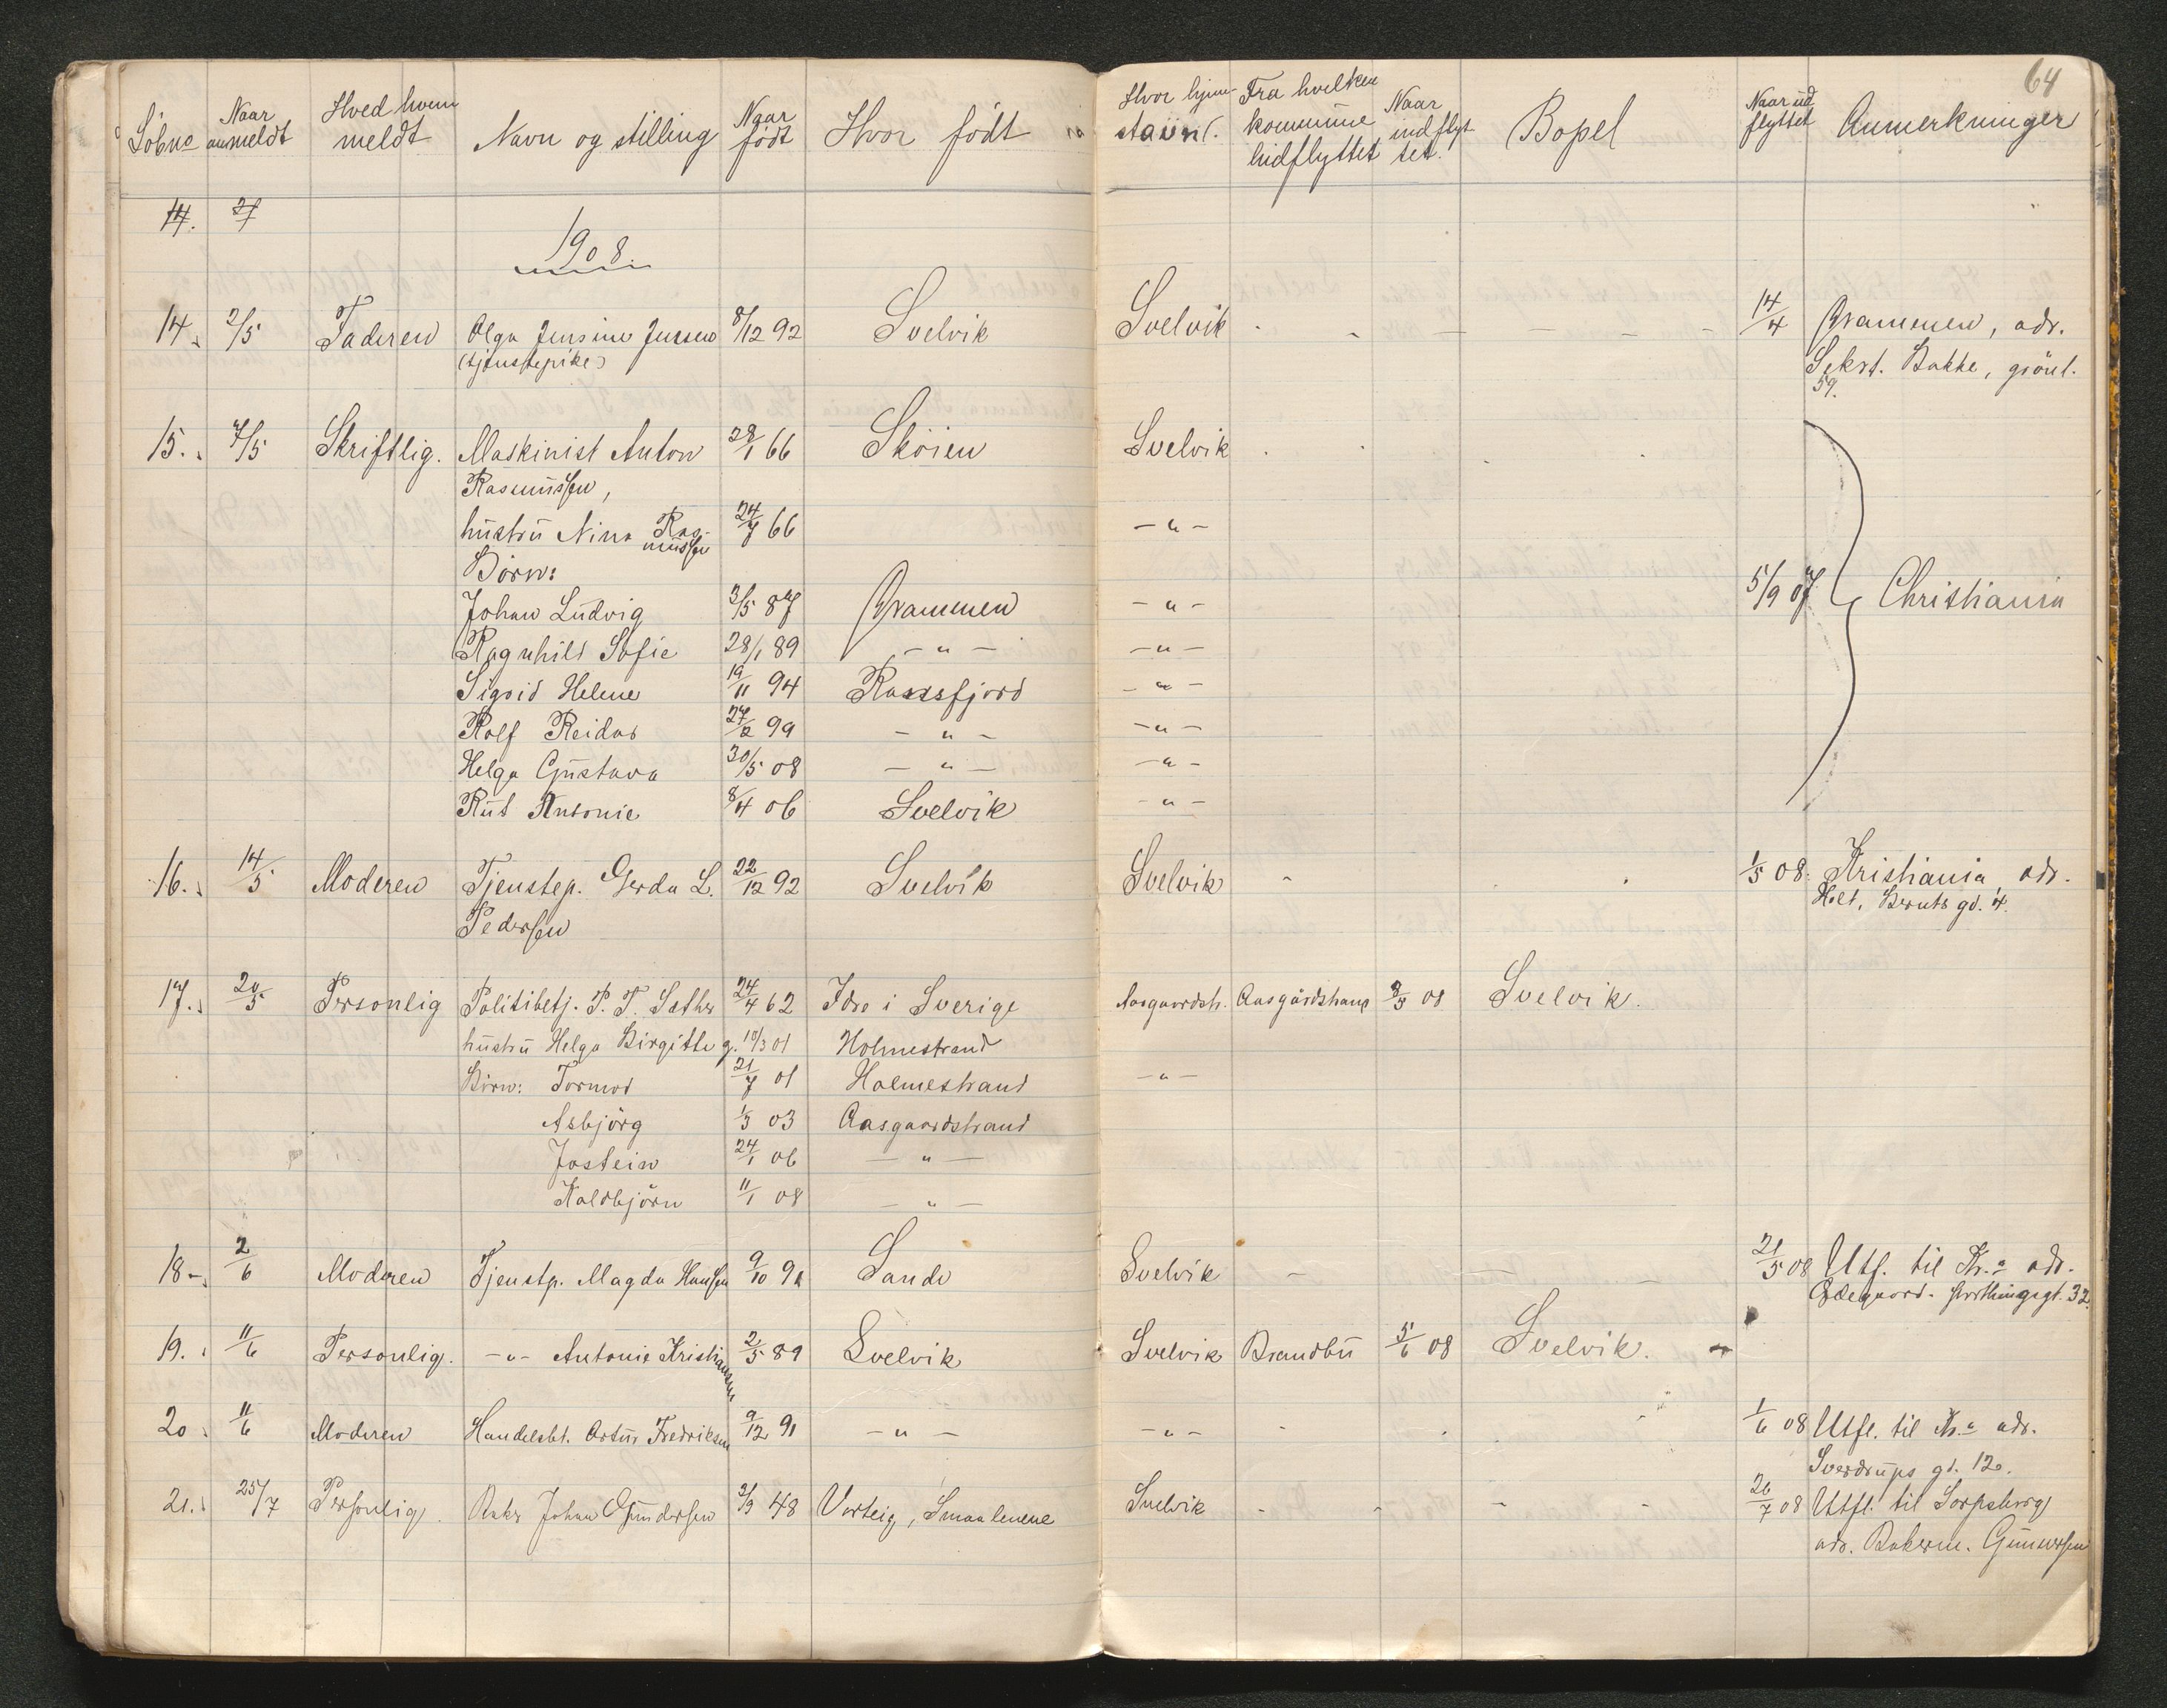 64
Löbno Naar anmeldt Hved hvem meldt Navn og stilling Naar født Hvor født Hvor hjem- Fra hvilken kommune hidflyttet Naar indflyttet. Bopel Naar udflyttet Anmerkninger
14. 2/
1908.
14. 2/5 Faderen Olga Jensine Jensen 8/12 92 Svelvik Svelvik - - - - - 14/4 Drammen, adr.
(tjenstepike) Sekst. Bakke, grönl.
59.
15. 7/5 Skriftlig. Maskinist Anton 28/1 66 Skøien Svelvik
Rasmussen,
hustru Nina Ras- 24/7 66 -"-
mussen
Börn:
Johan Ludvig 3/5 87 Drammen -"- 5/9 07 Christiania
Ragnhild Sofie 28/1 89 -"- -"-
Sigrid Helene 19/11 94 -"-
Rolf Reidar 27/2 99 -"- -"-
Helga Gustava 30/5 08 -"- -"-
Rut Antonie 8/4 06 Svelvik -"-
16. 14/5 Moderen Tjenstep. Gerda L. 22/12 92 Svelvik Svelvik - 1/5 08. Kristiania, adr.
Pedersen Holt, Bernts gd. 4.
17. 20/5 Personlig Politibetj. P. T. Sæther 24/4 62 Idre i Sverige Aasgaardstr. Aasgårdstrand 8/5 08 Svelvik.
hustru Helga Birgitte g. 10/3 01 Holmestrand
Börn: Tormod 21/7 01 Holmestrand -"-
Asbjörg 1/3 03 Aasgaardstrand
Jostein 24/1 06 -"-
Haldbjörn 11/1 08 -"-
18. 2/6 Moderen Tjenstp. Magda Hansen 9/10 91 Sande Svelvik - 21/5 08 Utfl. til Kr.a adr.
Ödegaard. Storthingsgt. 32.
19. 11/6 Personlig. -"- Antonie Kristiansen 2/5 89 Svelvik Svelvik Brandbu 5/6 08 Svelvik.
20. 11/6 Moderen Handelsbt. Artur Fredriksen 9/12 91 -"- -"- - 1/6 08 Utfl. til Kr.a adr.
Sverdrups gd. 12.
21. 25/7 Personlig. Johan Gundersen 2/9 48 Varteig, Smaalenene Svelvik - - - 26/7 08 Utfl. til Sarpsborg
adr. Bakerm. Gundersen